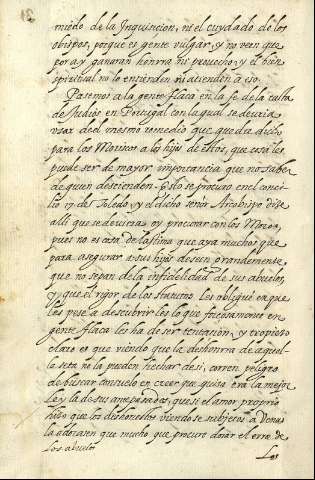 miedo de la Inquisicion, ni el cuydado de los
obispos, porque es gente vulgar, y no veen que
por ay ganaran honrra ni prouecho, y el bien
spiritual no lo entienden ni atienden a eso.
Pasemos a la gente flaca en la fe de la casta
de Judios en Portugal con la qual se deuria
vsar del mesmo remedio que queda dicho
para los Moriscos a los hijos de estos, que cosa les
puede ser de mayor importancia que no saber
de quien descienden. Esto se procuro en el conci-
lio de Toledo, y el dicho señor Arcobispo dise
alli que se deuiera oy procurar con los Moros,
pues no es cosa de lastima que aya muchos que
para asegurar a sus hijos deseen grandemente
que no sepan de la infidelidad de sus abuelos,
y que el rigor de los statutos les obligue a que
les pese a descubrirles lo que forçosamente en
gente flaca les ha de ser tentación, y tropieso
claro es que viendo que la deshonrra de aquel-
la seta no la pueden hechar de si, corren peligro
de buscar consuelo en creer que quisa era la mejor
ley la de sus antepasados, que si el amor proprio
hizo que los deshonestos viendose subjetos a Venus
la adorasen que mucho que procure dorar el erro de
los abuelos
Los